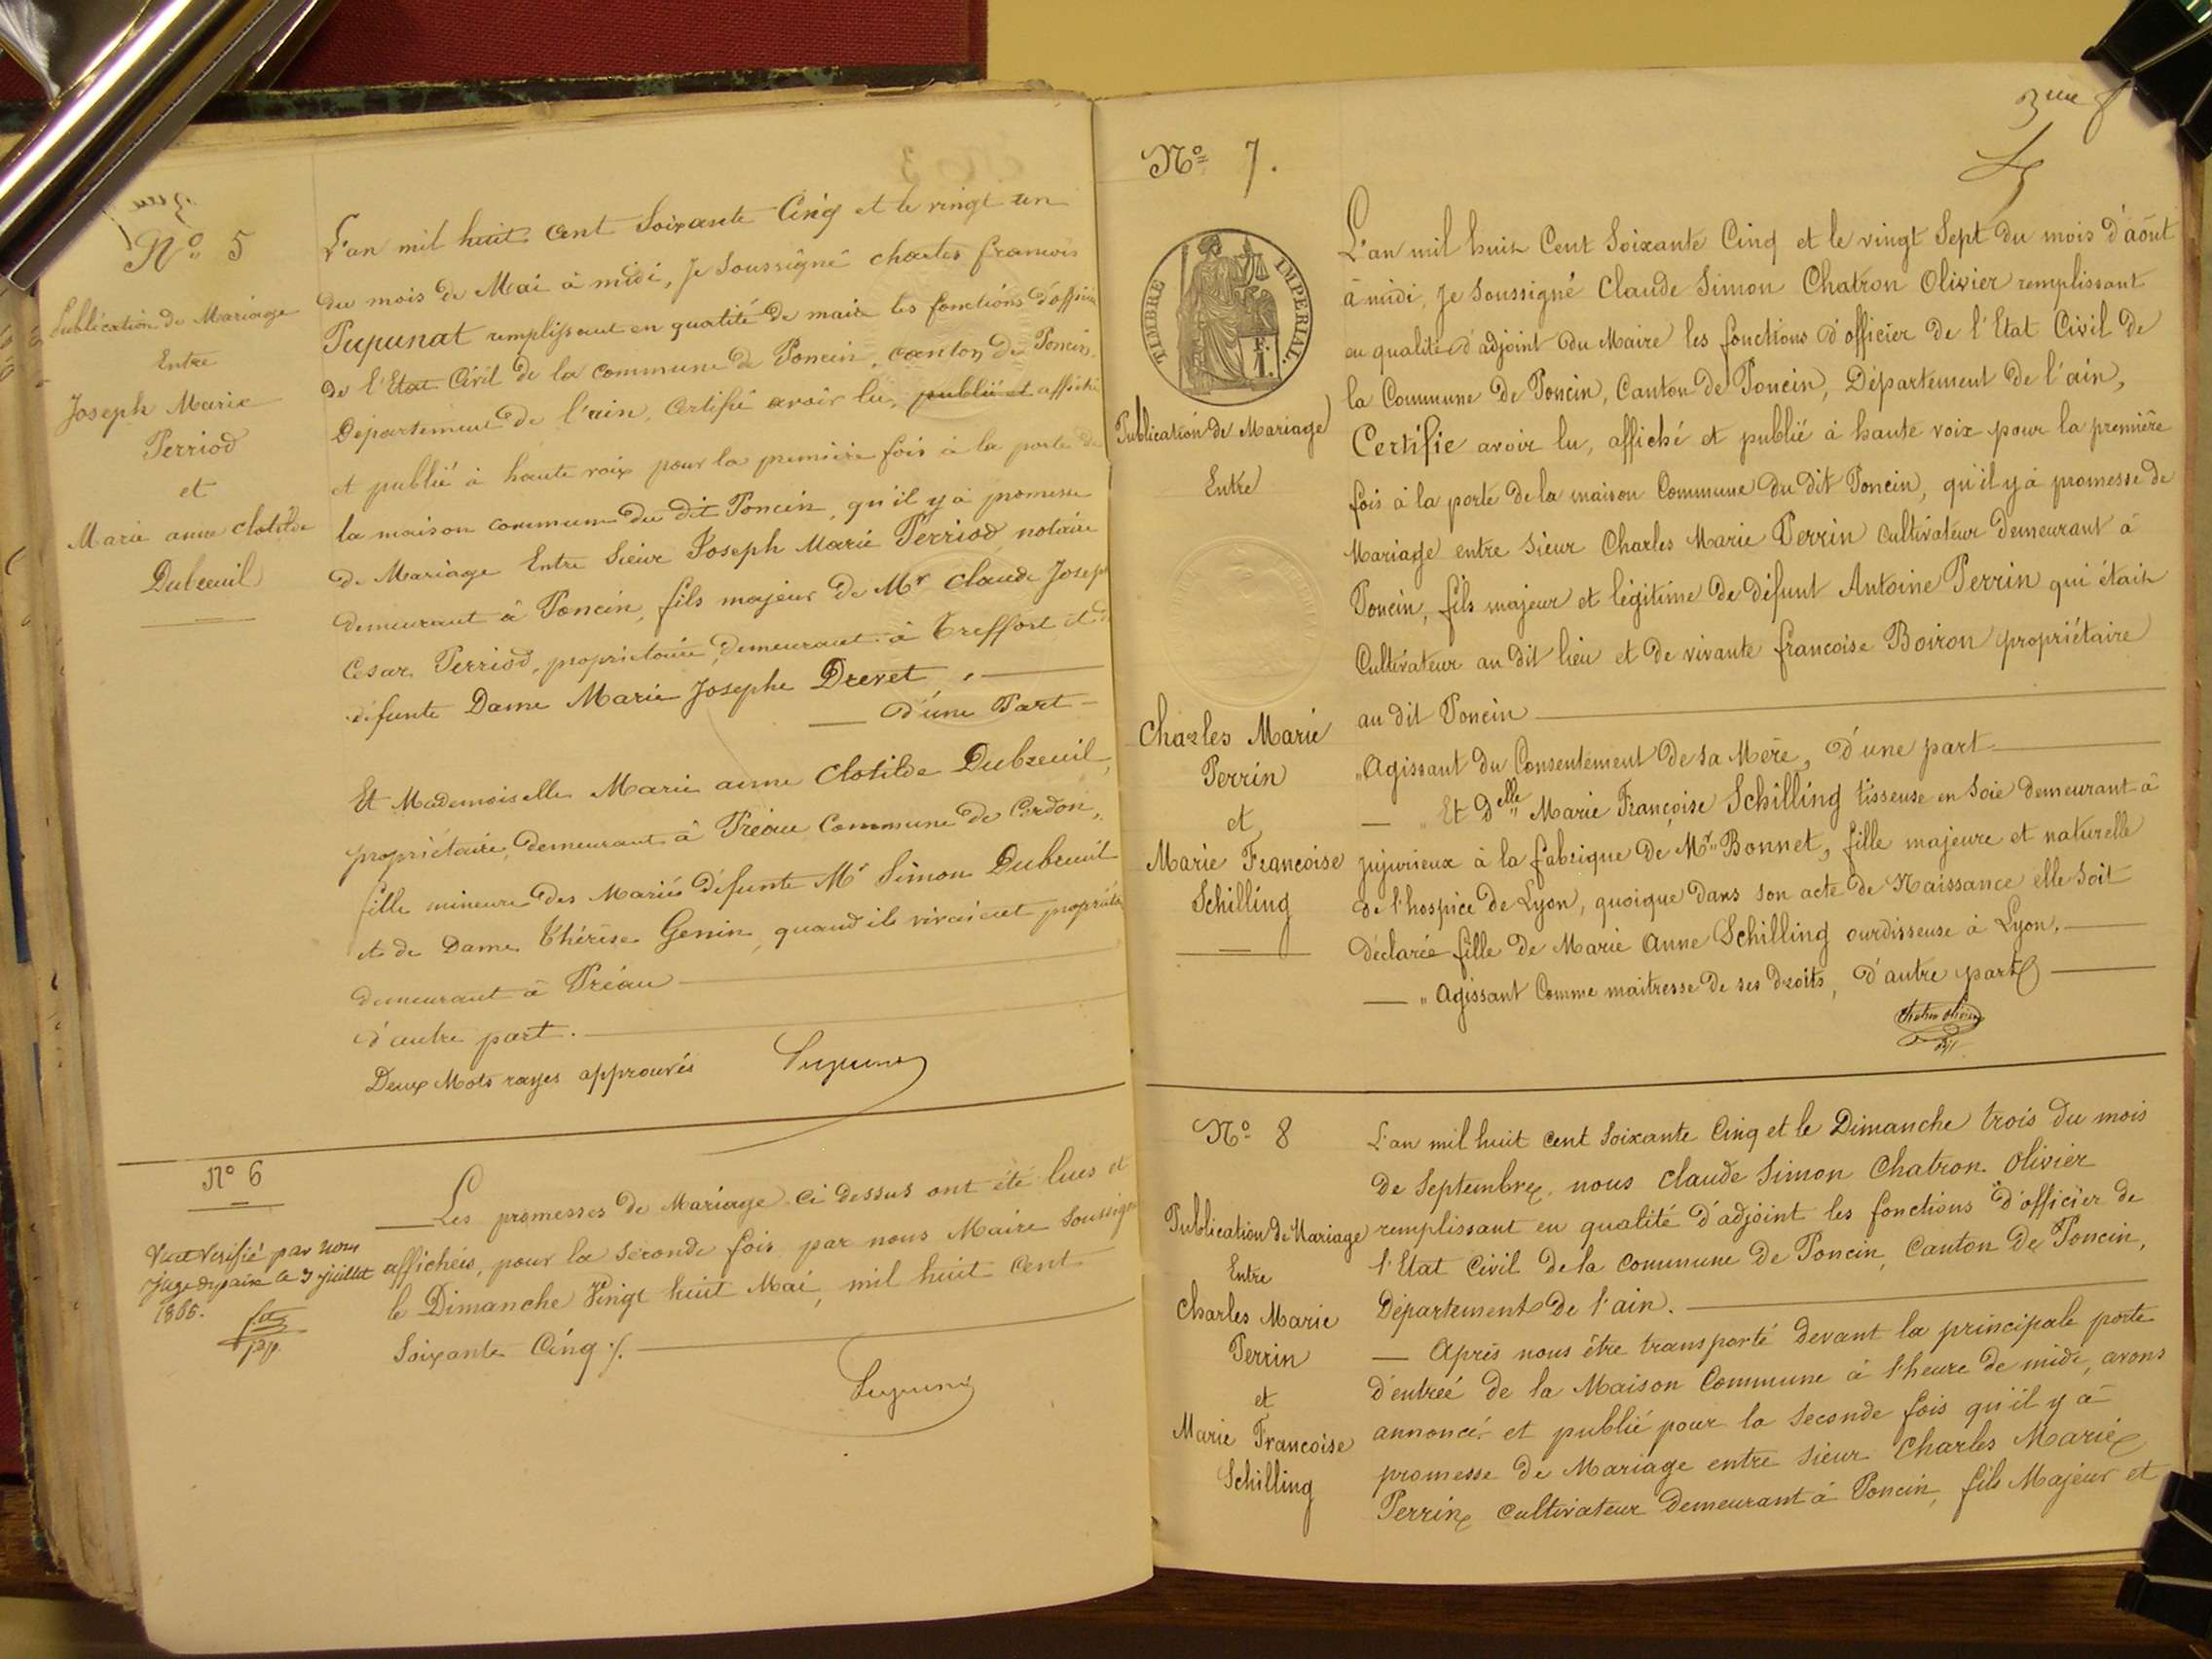 N° 5
Publication de Mariage
Entre
Joseph Marie
Perriod
et
Marie anne clotilde
Dubreuil
L'an mil huit cent Soixante Cinq et le vingt un
du mois de Mai à midi, Je Soussigné charles francois
Pupunat remplissant en qualité de maire les fonctions d'officier
de l'Etat Civil de la commune de Poncin, canton de Poncin,
Département de l'ain, Certifié avoir lu, publié et affiché
et publié à haute voix pour la première fois à la porte de
la maison commune du dit Poncin, qu'il y à promesse
de Mariage Entre Sieur Joseph Marie Perriod, notaire
demeurant à Poncin, fils majeur de Mr Claude Joseph
Cesar Perriod, propriétaire, demeurant à Treffort et de
défunte Dame Marie Josephe Drevet,
d'une Part
Et Mademoiselle Marie anne Clotilde Dubreuil,
propriétaire, demeurant à Préau Commune de Cerdon,
fille mineure des Mariés défunts Mr Simon Dubreuil
et de Dame Thérèse Genin, quand ils vivaient propriétaires
demeurant à Préau
d'autre part.
Deux Mots rayés approuvés
N° 6
Vu et Vérifié par nous
Juge de paix le 3 juillet
1865.
Les promesses de Mariage ci dessus ont été lues et
affichées, pour la Seconde fois, par nous Maire Soussigné
le Dimanche Vingt huit Mai, mil huit cent
Soixante Cinq ./.
3me f
N° 7.
TIMBRE IMPERIAL.
1 F.
Publication de Mariage
Entre
Charles Marie
Perrin
et
Marie Francoise
Schilling
L'an mil huit Cent Soixante Cinq et le vingt Sept du mois d'août
à midi, Je Soussigné Claude Simon Chatron Olivier remplissant
en qualité d'adjoint du Maire les fonctions d'officier de l'Etat Civil de
la Commune de Poncin, Canton de Poncin, Département de l'ain,
Certifie avoir lu, affiché et publié à haute voix pour la première
fois à la porte de la maison Commune du dit Poncin, qu'il y à promesse de
Mariage entre Sieur Charles Marie Perrin Cultivateur demeurant à
Poncin, fils majeur et légitime de défunt Antoine Perrin qui était
Cultivateur au dit lieu et de vivante francoise Boiron propriétaire
au dit Poncin
Agissant du Consentement de sa Mère, d'une part
Et Delle Marie Françoise Schilling tisseuse en Soie demeurant à
jujurieux à la fabrique de Mr Bonnet, fille majeure et naturelle
de l'hospice de Lyon, quoique dans son acte de Naissance elle soit
déclarée fille de Marie Anne Schilling ourdisseuse à Lyon.
Agissant Comme maitresse de ses droits, d'autre part
Chatron Olivier
N° 8
Publication de Mariage
Entre
Charles Marie
Perrin
et
Marie Francoise
Schilling
L'an mil huit cent Soixante Cinq et le Dimanche trois du mois
de Septembre, nous Claude Simon Chatron Olivier
remplissant en qualité d'adjoint les fonctions d'officier de
l'Etat Civil de la commune de Poncin, Canton de Poncin,
Département de l'ain.
Après nous être transporté devant la principale porte
d'entrée de la Maison Commune à l'heure de midi, avons
annoncé et publié pour la Seconde fois qu'il y à
promesse de Mariage entre Sieur Charles Marie
Perrin, Cultivateur Demeurant à Poncin, fils Majeur et